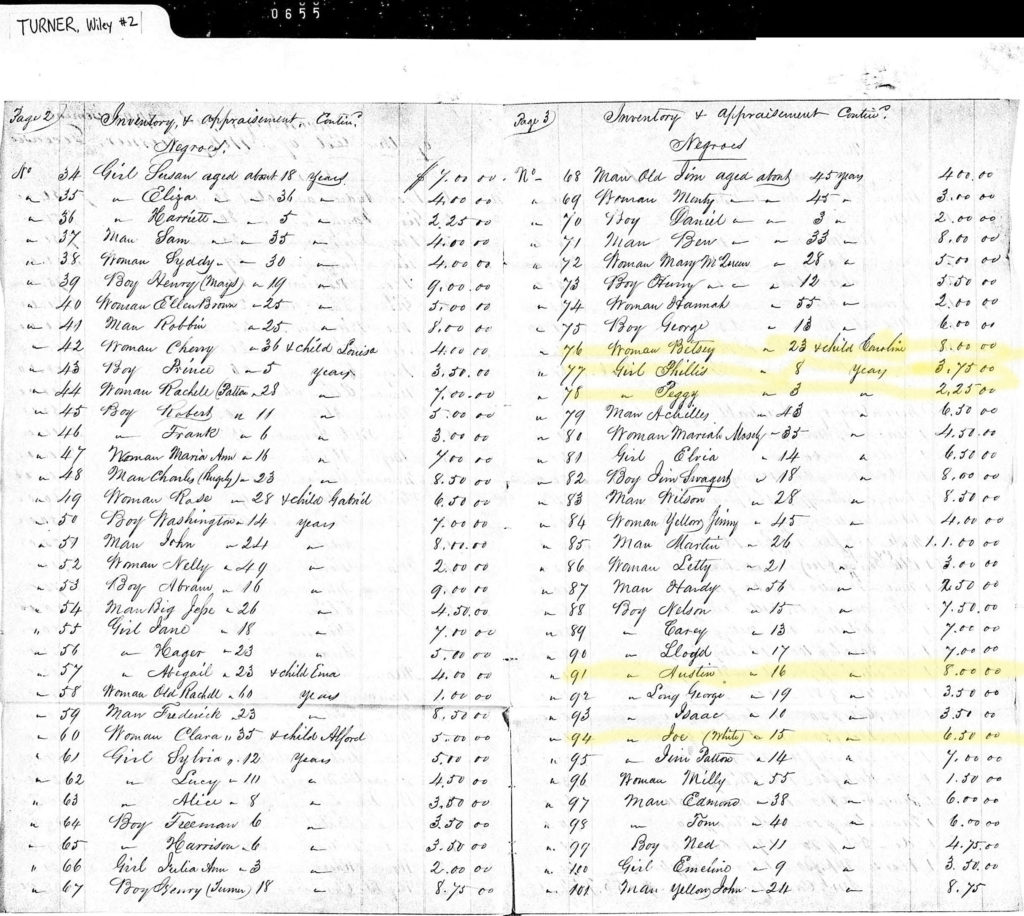 TURNER, Wiley #2
0655
Page 2
Inventory, & Appraisement Contind.
Negroes.
No 34 Girl Susan aged about 18 years $ 7.00.00
" 35 " Eliza " 36 " 4.00 00
" 36 " Harriett " 5 " 2.25 00
" 37 Man Sam " " 35 " 4.00 00
" 38 Woman Syddy " 30 " 4.00 00
" 39 Boy Henry (Mays) " 19 " 9.00 00
" 40 Woman Ellen Brown " 25 " 5.00 00
" 41 Man Robbin " 25 " 8.00 00
" 42 Woman Cherry " 36 & child Louisa 4.00 00
" 43 Boy Prince " 5 years 3.50.00
" 44 Woman Rachell (Patton " 28 " 7.00.00
" 45 Boy Robert " 11 " 5.00 00
" 46 " Frank " 6 " 3.00 00
" 47 Woman Maria Ann " 16 " 7.00 00
" 48 Man Charles " 23 " 8.50 00
" 49 Woman Rose " 28 & child Gabriel 6.50 00
" 50 Boy Washington " 14 years 7.00 00
" 51 Man John " 24 " 8.00.00
" 52 Woman Nelly " 49 " 2.00 00
" 53 Boy Abram " 16 " 9.00 00
" 54 Man Big Jesse " 26 " 4.50.00
" 55 Girl Jane " 18 " 7.00 00
" 56 " Hager " 23 " 5.00 00
" 57 " Abigail " 23 & child Ema 4.00 00
" 58 Woman Old Rachell " 60 years 1.00 00
" 59 Man Frederick " 23 " 8.50 00
" 60 Woman Clara " 35 & child Alford 5.00 00
" 61 Girl Sylvia " 12 years 5.00 00
" 62 " Lucy " 10 " 4.50 00
" 63 " Alice " 8 " 3.50 00
" 64 Boy Freeman " 6 " 3.50 00
" 65 " Harrison " 6 " 2.50 00
" 66 Girl Julia Ann " 3 " 2.00 00
" 67 Boy Henry (Turner) 18 " 8.75 00
Page 3
Inventory & Appraisement Contind.
Negroes
No 68 Man Old Jim aged about 45 years 4.00.00
" 69 Woman Menty " " 45 " 3.00 00
" 70 Boy Daniel " " 3 " 2.00 00
" 71 Man Ben " " 33 " 8.00 00
" 72 Woman Mary " 28 " 5.00 00
" 73 Boy Henry " " 12 " 5.50 00
" 74 Woman Hannah " 55 " 2.00 00
" 75 Boy George " 13 " 6.00 00
" 76 Woman Betsey " 23 & child Emeline 8.00 00
" 77 Girl Phillis " 8 years 3.75 00
" 78 " Peggy " 3 " 2.25 00
" 79 Man Achilles " 43 6.50 00
" 80 Woman Mariah Mosely " 35 " 4.50.00
" 81 Girl Elvia " 14 " 6.50 00
" 82 Boy Jim Swagert " 18 " 8.00 00
" 83 Man Wilson " 28 " 8.50 00
" 84 Woman Yellow Jinny " 45 " 4.00 00
" 85 Man Martin " 26 " 1.1.00 00
" 86 Woman Letty " 21 " 3.00 00
" 87 Man Hardy " 56 " 2.50 00
" 88 Boy Nelson " 15 " 7.50.00
" 89 " Carey " 13 " 7.00 00
" 90 " Lloyd " 17 " 7.00 00
" 91 " Austin " 16 " 8.00.00
" 92 " Long George " 19 " 3.50 00
" 93 " Isaac " 10 " 3.50 00
" 94 " Joe (White) " 15 " 6.50 00
" 95 " Jim Patton " 14 " 7.00 00
" 96 Woman Milly " 55 " 1.50 00
" 97 Man Edmond " 38 " 6.00 00
" 98 " Tom " 40 " 6.00 00
" 99 Boy Ned " 11 " 4.75.00
" 100 Girl Emeline " 9 " 3.50 00
" 101 Man Yellow John " 24 " 8.75